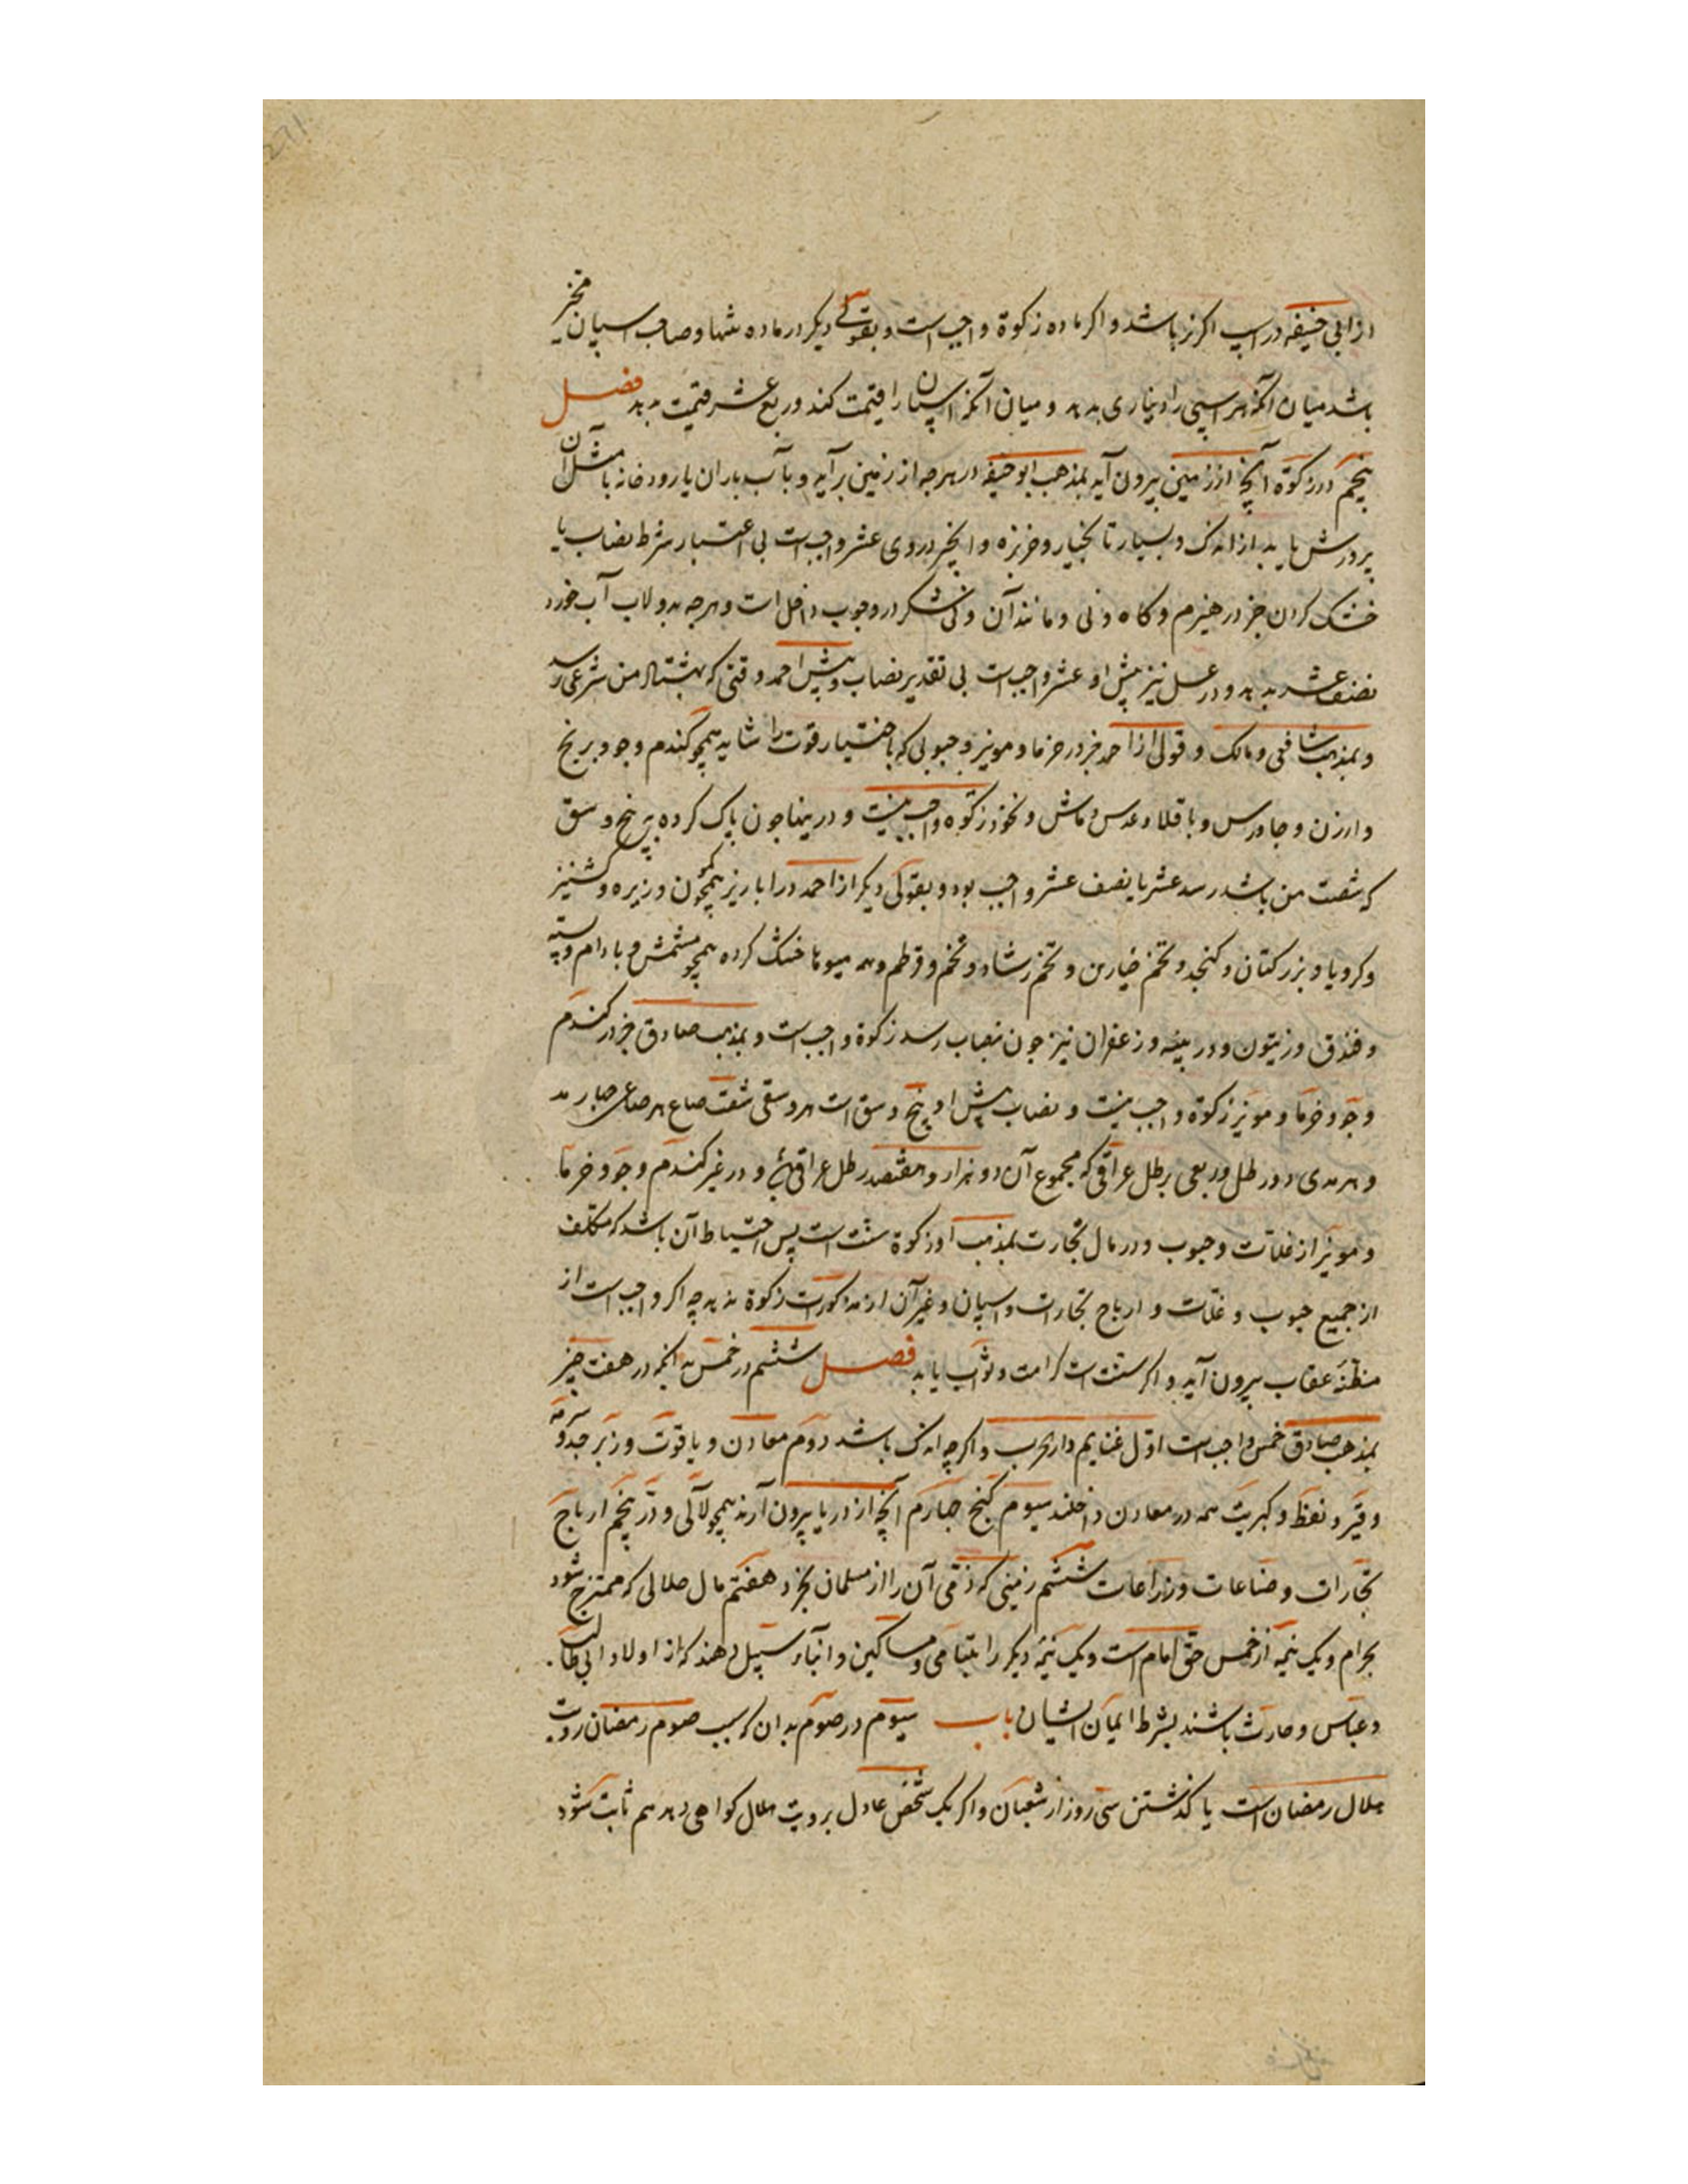 از ابی حنیفه در اسپ اگر نر باشد و اگر ماده زکوة واجبست و بقولی دیگر در ماده تنها و صاحب اسپان مخیر
باشد میان آنکه هر اسپی را دیناری بدهد و میان آنکه اسپان را قیمت کند و ربع عشر قیمت بدهد فصل
پنجم در زکوة آنچه از زمین بیرون آید بمذهب ابو حنیفه در هرچه از زمین برآید و بآب باران یا رودخانه یا مثل آن
پرورش یابد از اندک و بسیار تا بخیار و خربزه و انجیر در وی عشر واجبست بی اعتبار شرط نصاب یا
خشک کردن جز در هیزم و کاه و نی و مانند آن و نی شکر در وجوب داخل است و هرچه بدولاب آب خورد
نصف عشر بدهد و در عسل نیز پیش او عشر واجبست بی تقدیر نصاب و پیش احمد وقتی که بهشتاد من شرعی رسد
و بمذهب شافعی و مالک و قولی از احمد جز در خرما و مویز و حبوبی که باختیار قوت را شاید همچو کندم و جو و برنج
و ارزن و جاورس و باقلا و عدس و ماش و نخود زکوة واجب نیست و درینها چون پاک کرده بپنج وسق
که شصت من باشد رسد عشر یا نصف عشر واجب بود و بقولی دیگر از احمد در ابازیر همچو کمون و زیره و کشنیز
و کرویا و بزر کتان و کنجد و تخم خیارین و تخم رشاد و تخم و قرطم و همه میوها خشک کرده همچو مشمش و بادام و پسته
و فندق و زیتون و در پنبه و زعفران نیز چون بنصاب رسد زکوة واجبست و بمذهب صادق جز در کندم
و جو و خرما و مویز زکوة واجب نیست و نصاب پیش او پنج وسق است هر وسقی شصت صاع هر صاعی چهار مد
و هر مدی دو رطل و ربعی برطل عراقی که مجموع آن دو هزار و هفتصد رطل عراقی و در غیر کندم و جو و خرما
و مویز از غلات و حبوب و در مال تجارت بمذهب او زکوة سنت است پس احتیاط آن باشد که مکلف
از جمیع حبوب و غلات و ارباح تجارات و اسپان و غیر آن از مذکورات زکوة بدهد چه اگر واجبست از
مظنه عقاب بیرون آید و اگر سنت است کرامت و ثواب یابد فصل ششم در خمس بدانکه در هفت چیز
بمذهب صادق خمس واجبست اول غنایم دار الحرب و اگرچه اندک باشد دوم معادن و یاقوت و زبرجد و سرمه
و قیر و نفط و کبریت همه در معادن داخلند سیوم کنج چهارم آنچه از دریا بیرون آرند همچو لآلی و در پنجم ارباح
تجارات و صناعات و زراعات ششم زمینی که ذمی آن را از مسلمان بخرد هفتم مال حلالی که ممتزج شود
بحرام و یک نیمه از خمس حق امام است و یک نیمه دیگر را بیتامی و مساکین و ابناء سبیل دهند که از اولاد ابی طالب
و عباس و حارث باشند بشرط ایمان ایشان باب سیوم در صوم بدان که سبب صوم رمضان رویت
هلال رمضان است یا گذشتن سی روز از شعبان و اگر یک شخص عادل برویت هلال کواهی دهد هم ثابت شود